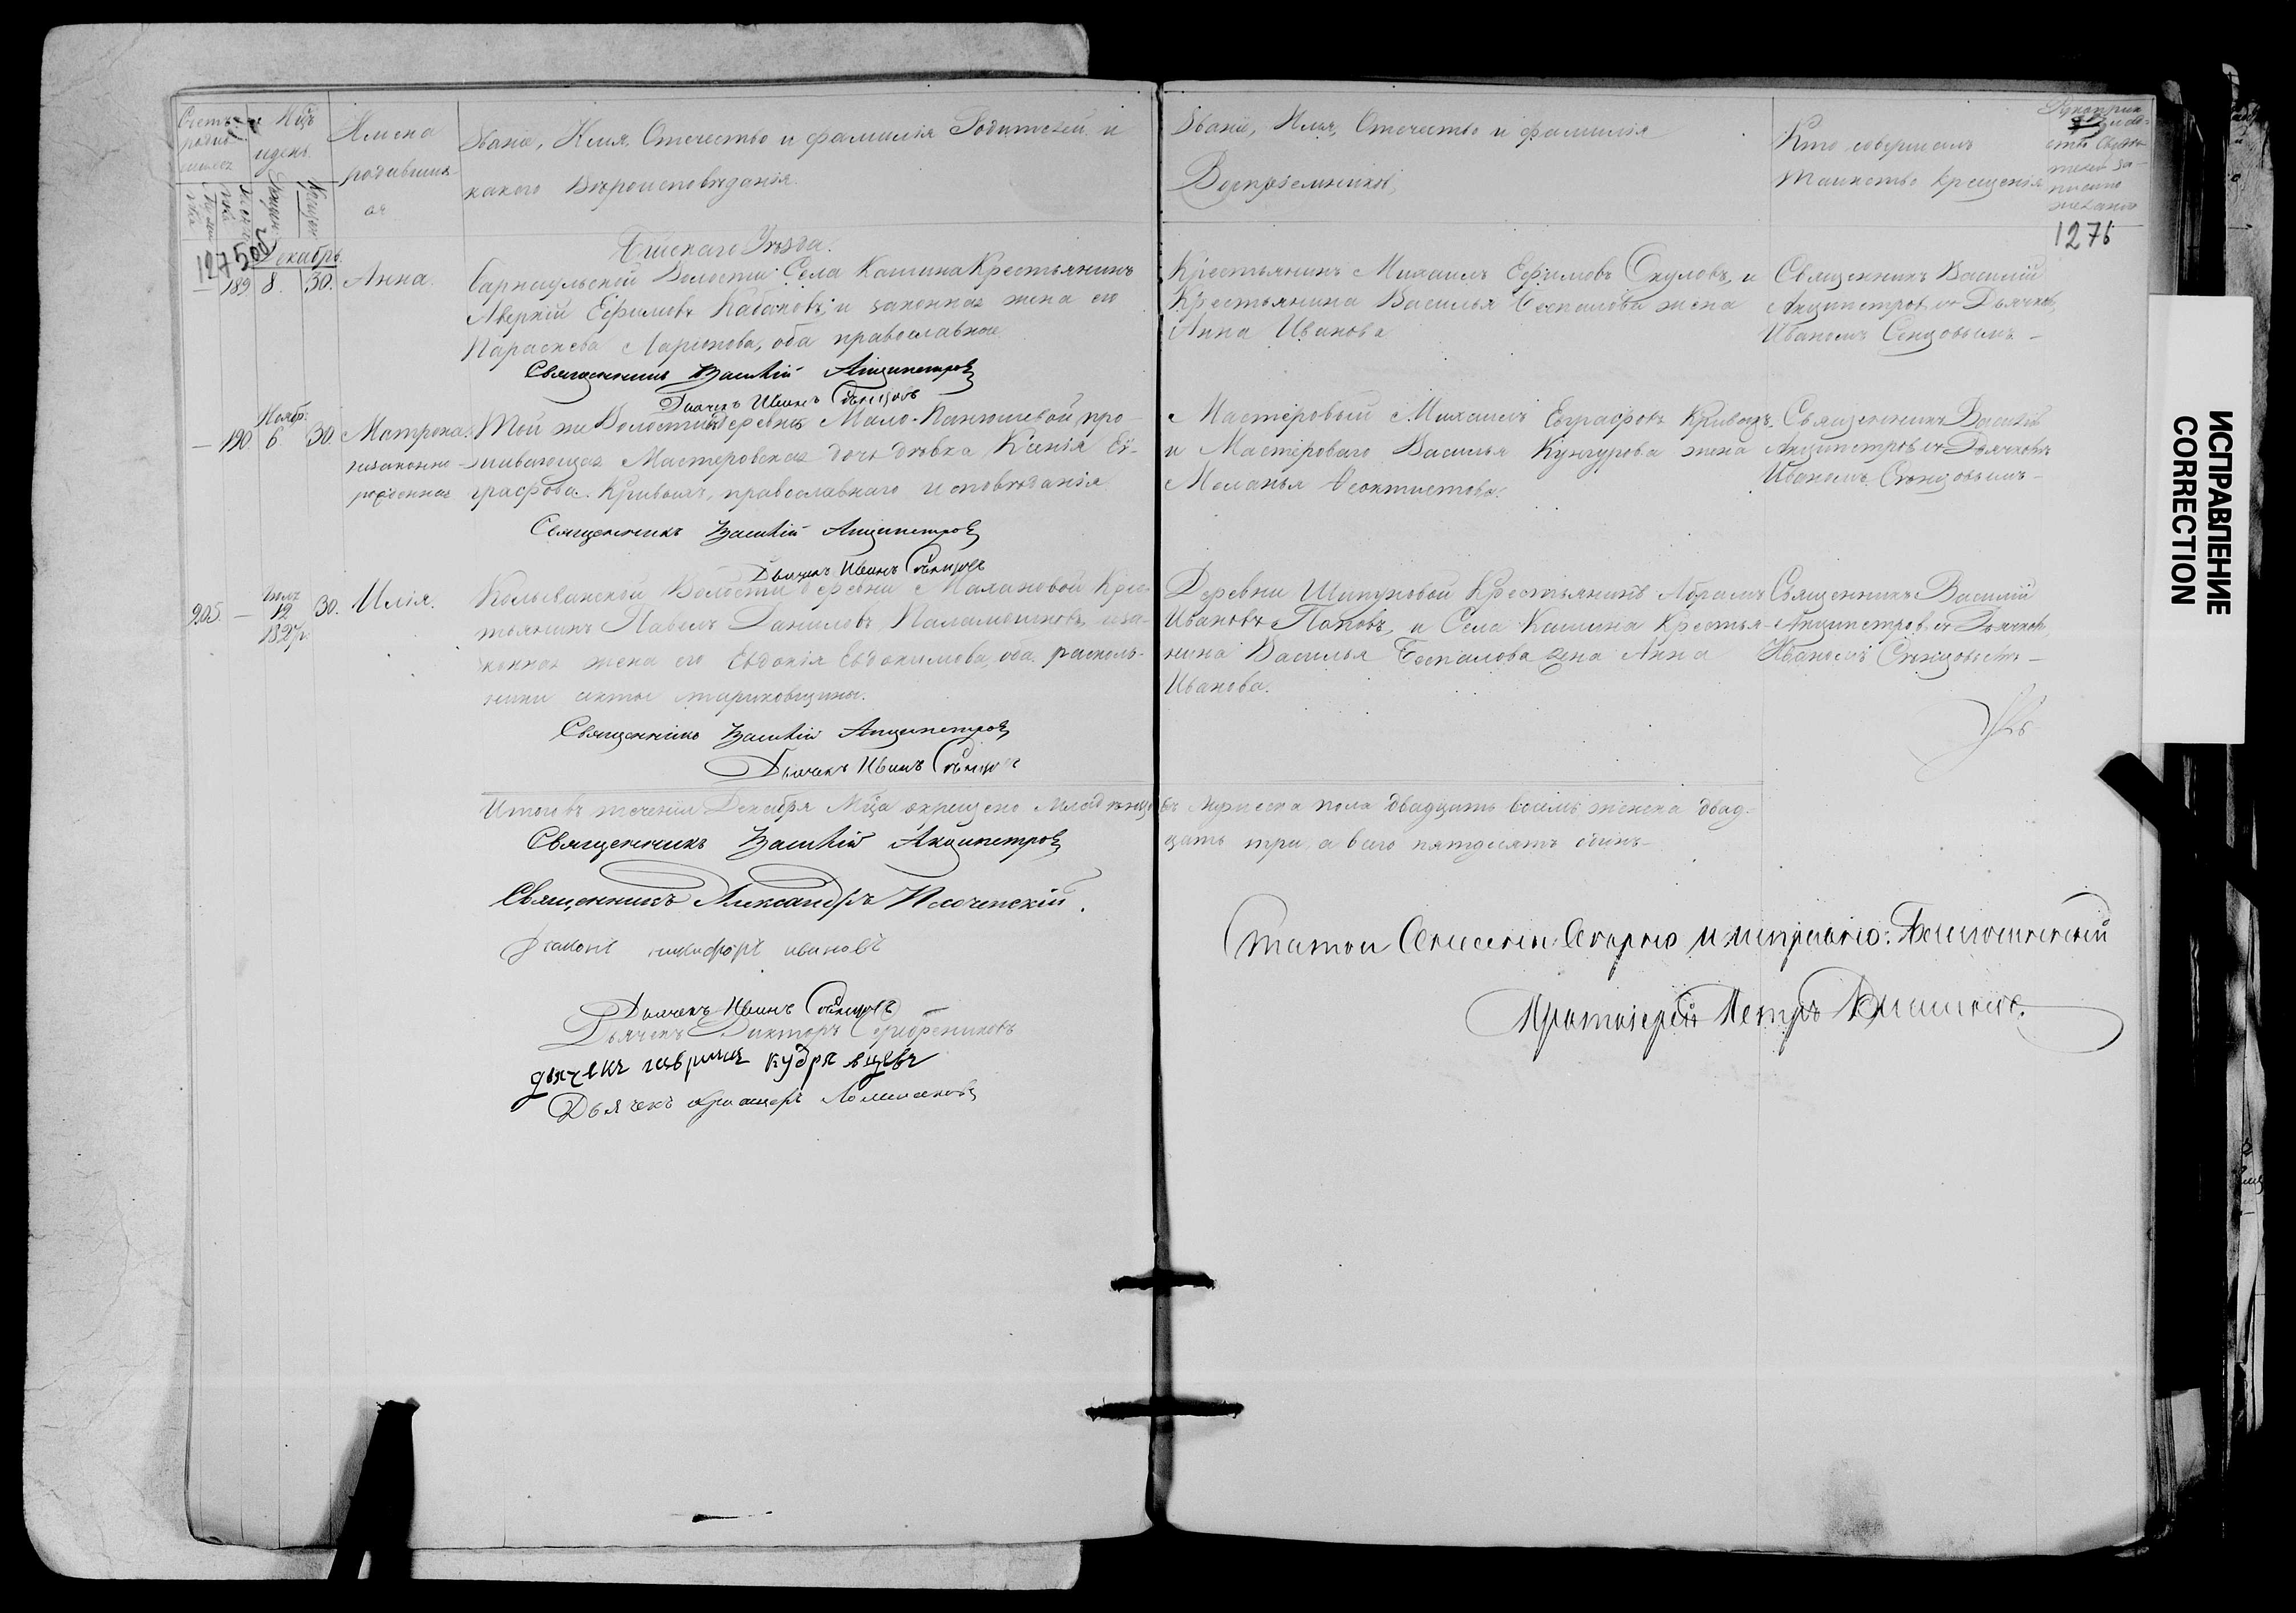 Счетъ
родив
шихся
Мѣц.
и день.
Имена
родивших
ся
Званіе, Имя, Отечество и фамилія Родителей и
какого Вѣроисповѣданія.
Званіе, Имя, Отечество и фамилія
Воспріемниковъ,
Кто совершалъ
таинство крещенія
1275 об
1276
Декабрь
Бійскаго Уѣзда.
189. 8. 30. Анна.
Барнаульской Волости Села Кашина Крестьянинъ
Аверкій Ефимовъ Кабаковъ, и законная жена его
Параскева Ларіонова, оба православные
Священникъ Василій Акципетровъ
Дьячекъ Иванъ Сѣнцовъ
Крестьянинъ Михаилъ Ефимовъ Окуловъ, и
Крестьянина Василья Беспалова жена
Анна Иванова
Священникъ Василій
Акципетровъ съ Дьячком,
Иваномъ Сенцовымъ –
Нояб:
– 190. 6. 30. Матрона.
незаконно
рожденная
Той же Волости Деревни Мало-Панюшевой, про-
живающая Мастеровская дочь дѣвка Ксенія Ев-
графова Кривыхъ, православнаго исповѣданія
Священникъ Василій Акципетровъ
Дьячекъ Иванъ Сѣнцовъ
Мастеровый Михаилъ Евграфовъ Кривыхъ
и Мастероваго Василья Кунгурова жена
Меланья Феоктистова.
Священникъ Василій
Акципетровъ съ Дьячкомъ
Иваномъ Сѣнцовымъ –
205. – 12 30. Илія.
Колыванской Волости деревни Малановой Крес-
тьянинъ Павелъ Даниловъ и за-
конная жена его Евдокія Евдокимова, оба расколь-
ники секты стариковщины.
Священникъ Василій Акципетровъ
Дьячекъ Иванъ Сѣнцовъ
Деревни Шипуновой Крестьянинъ Абрамъ
Ивановъ Поповъ, и Села Кашина Крестья-
нина Василья Беспалова жена Анна
Иванова.
Священникъ Василій
Акципетровъ съ Дьячком,
Иваномъ Сѣнцовымъ –
Итого въ теченіи Декабря Мѣца окрещено младенцовъ мужеска пола двадцать восемь женска двад-
цать три, а всего пятдесятъ одинъ –
Священникъ Василій Акципетровъ
Священникъ Александръ
Діаконъ никифоръ ивановъ
Дьячекъ Иванъ Сѣнцовъ
Дьячекъ Викторъ Серебрениковъ
дьячекъ гаврилъ кудрявцевъ
Дьячекъ
Протоіерей Петръ
ИСПРАВЛЕНИЕ
CORRECTION